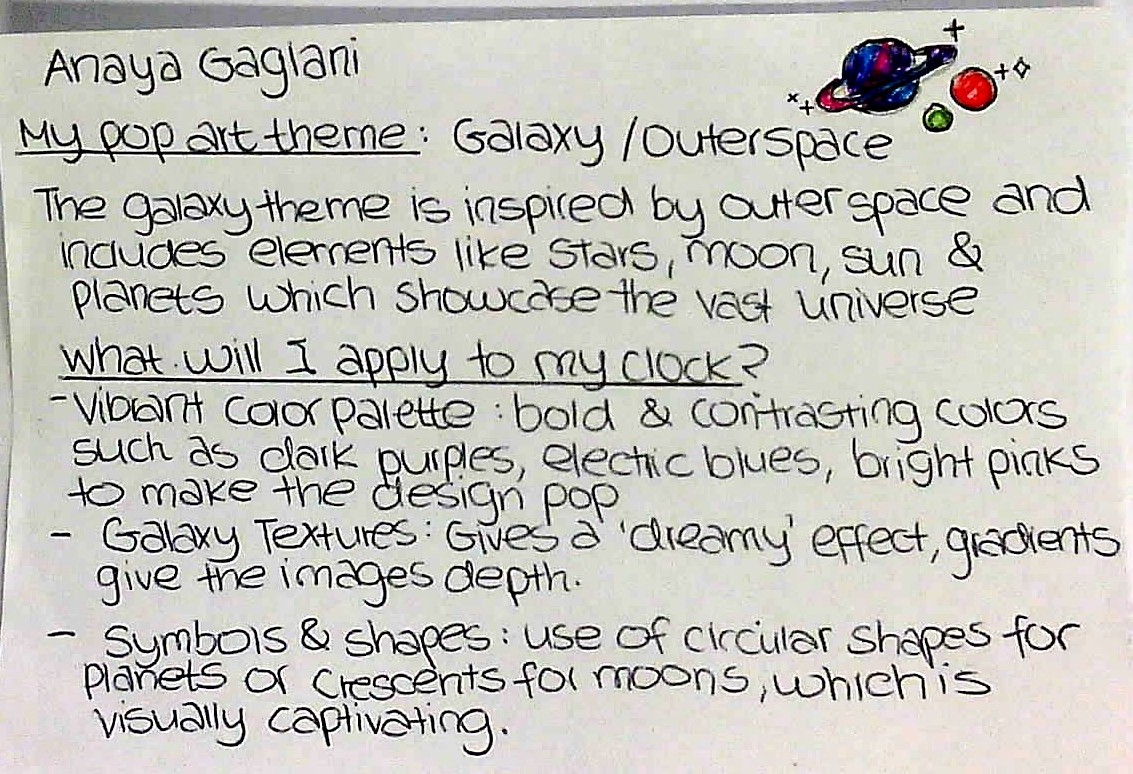 Anaya Gaglani
My pop art theme: Galaxy / Outerspace
The galaxy theme is inspired by outer space and
includes elements like stars, moon, sun &
planets which showcase the vast universe
What will I apply to my clock?
- Vibrant color palette : bold & contrasting colors
such as dark purples, electric blues, bright pinks
to make the design pop
- Galaxy Textures: Gives a 'dreamy' effect, gradients
give the images depth.
- Symbols & shapes : use of circular shapes for
planets or crescents for moons, which is
visually captivating.